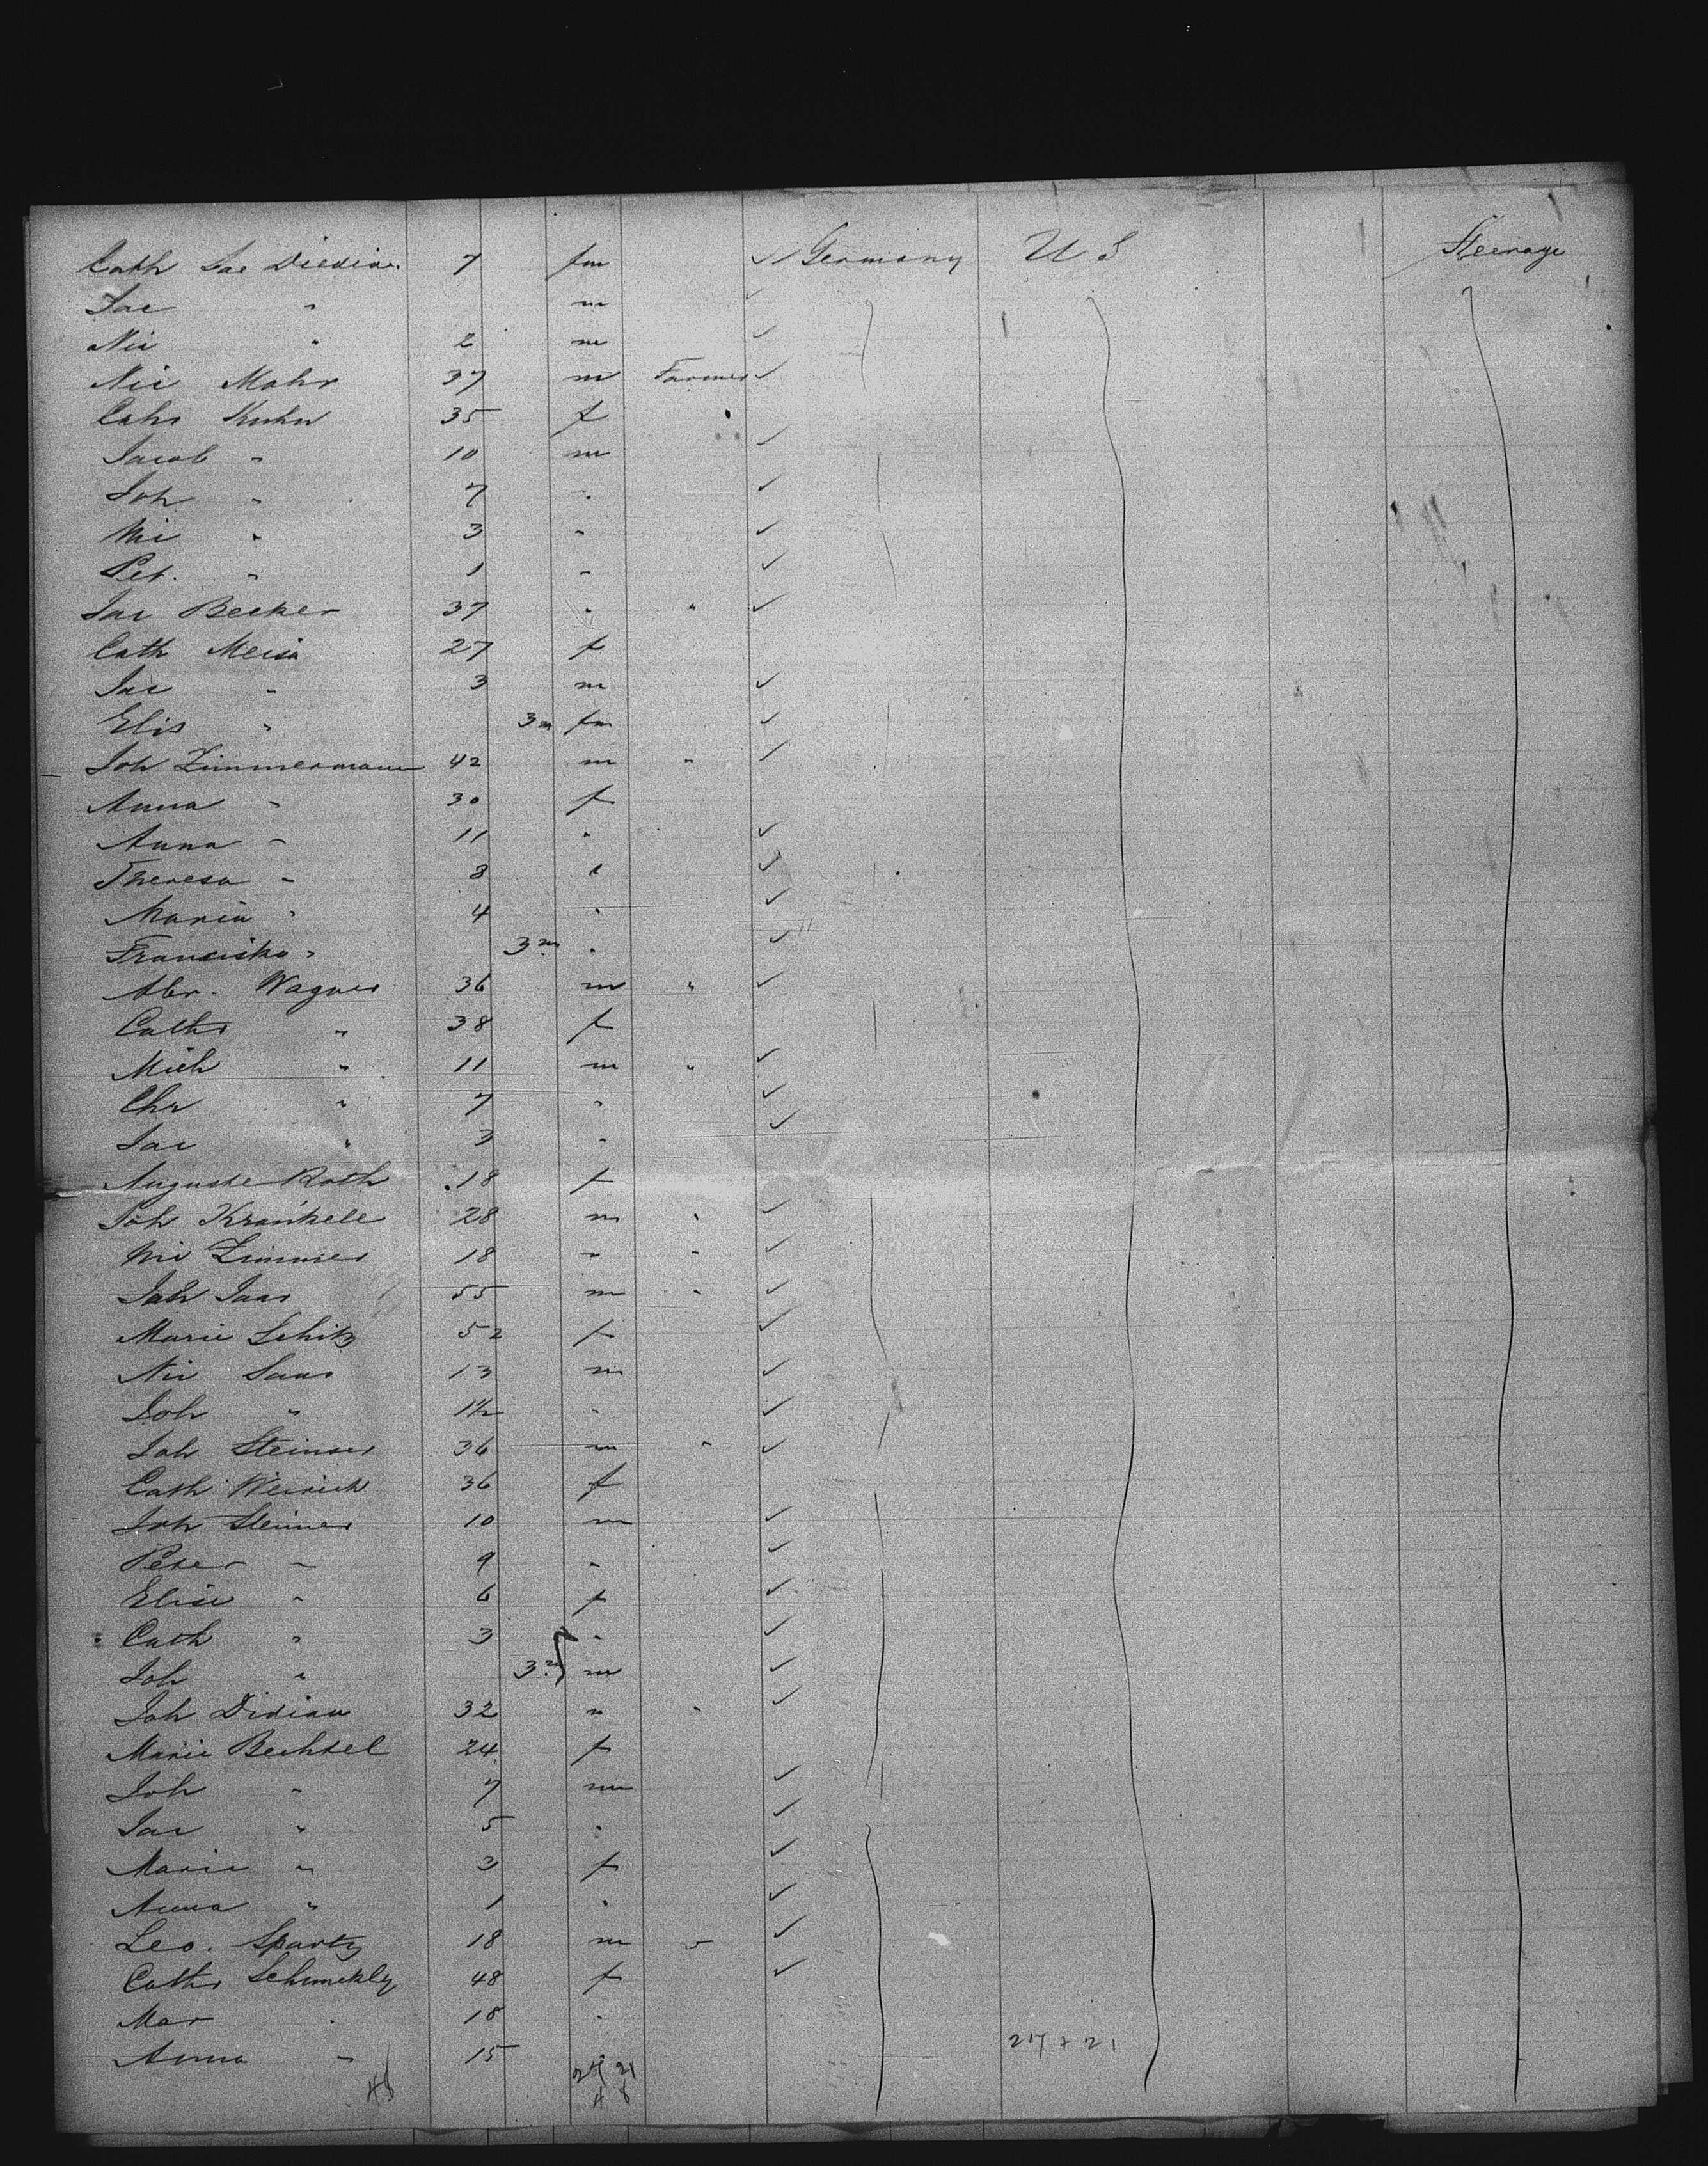 Cath Jac 7 fm Germany U S Steerage
Jac " m
Nic " 2 m
Nic Mohr 37 m Farmer
Cath Kuhn 35 f
Jacob " 10 m
Joh " 7 "
Ni " 3 "
Pet. " 1 "
Jac Becker 37 " "
Cath 27 f
Jac " 3 m
Elis " 3m fm
Joh Zimmermann 42 m "
Anna " 30 f
Anna " 11 "
Theresa " 8 "
Maria " 4 "
Franciska " 3m "
Abr. Wagner 36 m "
Cath " 38 f
Mich " 11 m "
Chr " 7 "
Jac " 3 "
Auguste Roth 18 f
Joh 28 m "
Ni Zimmer 18 " "
Joh 55 m "
Marie 52 f
Nic 13 m
Joh " 1½ "
Joh Steinser 36 m "
Cath Weirich 36 f
Joh Steiner 10 m
Peter " 9 "
Elise " 6 f
Cath " 3 "
Joh " 3m m
Joh Didian 32 " "
Marie Bechtel 24 f
Joh " 7 m
Jac " 5 "
Marie " 3 f
Anna " 1 "
Leo. Sparty 18 m "
Cath 48 f
Mar " 18 "
Anna " 15 " 27 + 21
48 27 21
48